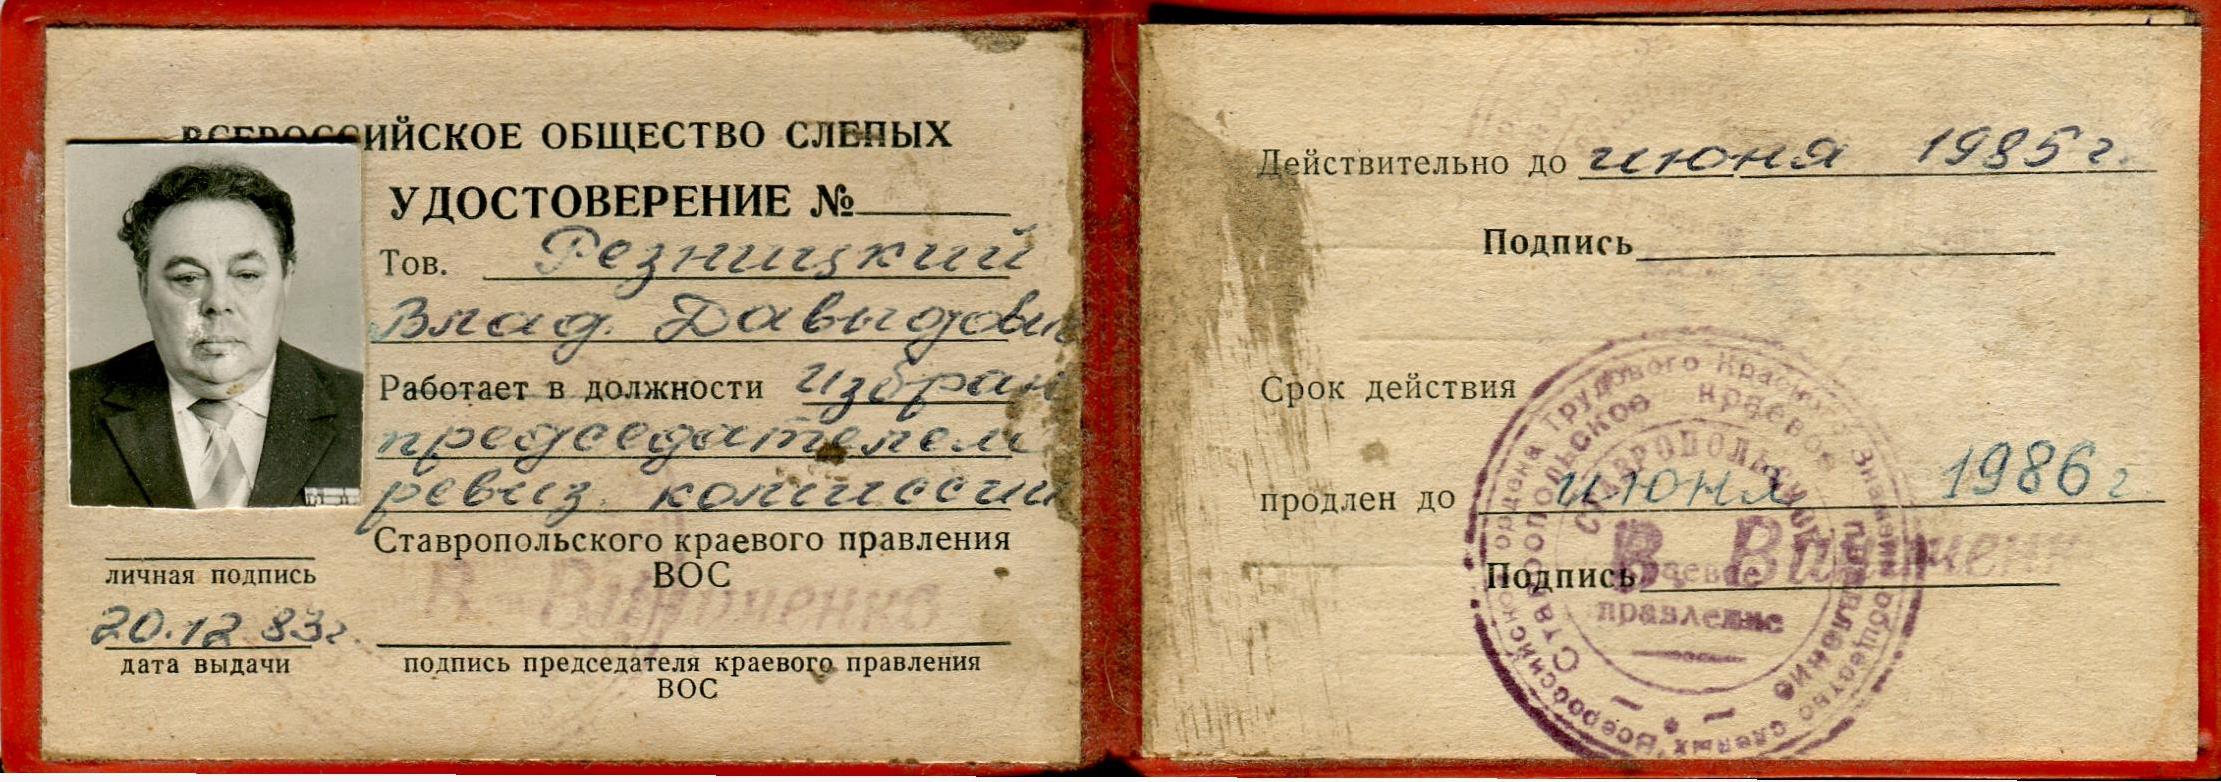 ВСЕРОССИЙСКОЕ ОБЩЕСТВО СЛЕПЫХ
УДОСТОВЕРЕНИЕ №
Тов. Резницкий
Влад. Давыдович
Работает в должности избран
председателем
ревиз. комиссии
Ставропольского краевого правления
ВОС
личная подпись
20.12.83г.
дата выдачи
подпись председателя краевого правления
ВОС
Действительно до июня 1985 г.
Подпись
Срок действия
продлен до июня 1986 г.
Подпись
Всероссийское ордена Трудового Красного Знамени общество слепых
Ставропольское краевое правление
Ставропольское
краевое
правление